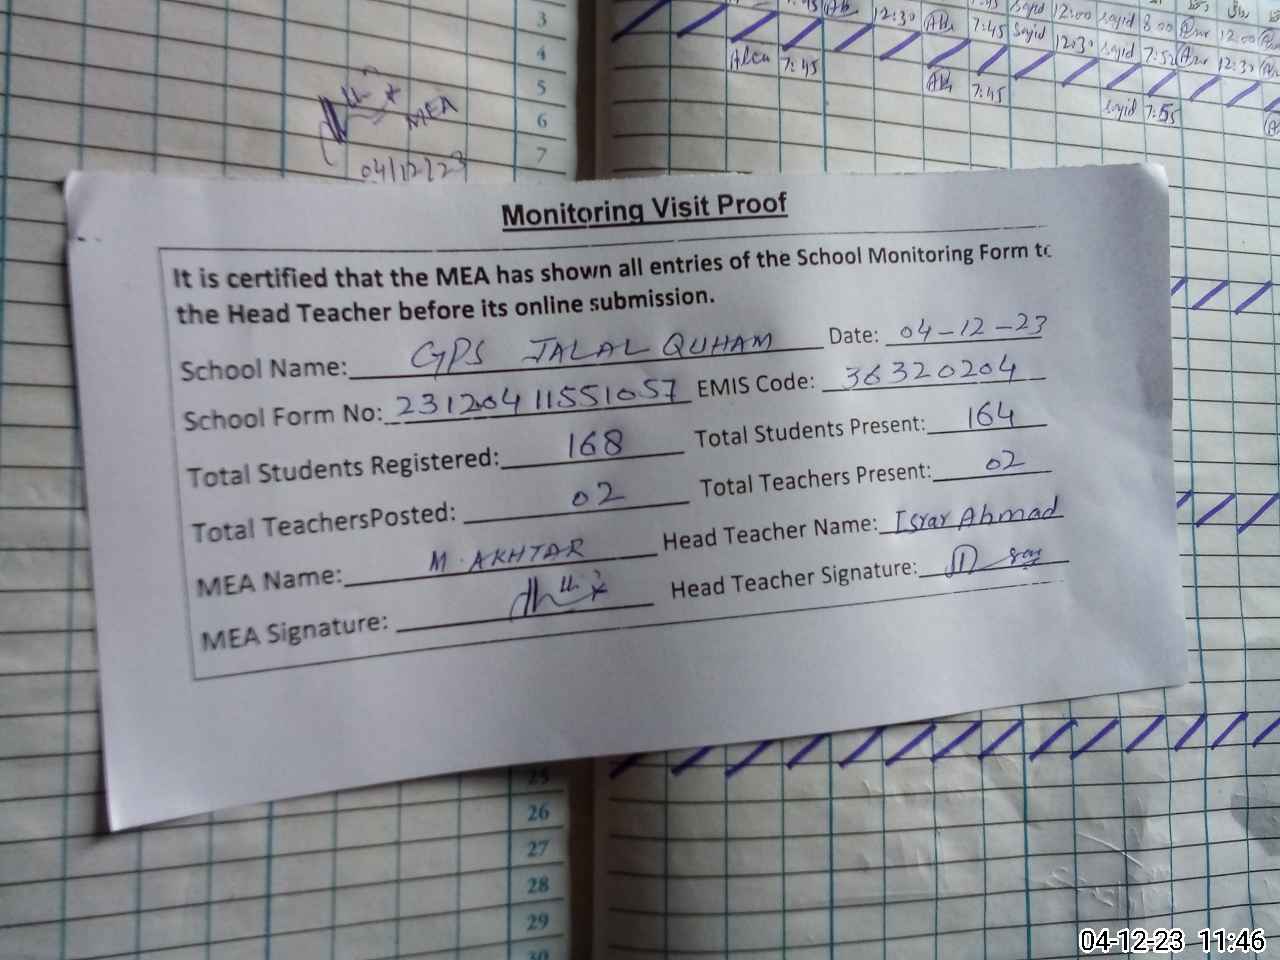 3
4
5
6
7
12:30 7:45 sajid 12:00 sajid 8:00 12:00
7:45 12:30 sajid 7:52 12:30
7:45
sajid 7:55
MEA
04/12/23
Monitoring Visit Proof
It is certified that the MEA has shown all entries of the School Monitoring Form to
the Head Teacher before its online submission.
School Name: GPS JALAL QUHAM Date: 04-12-23
School Form No: 23120411551057 EMIS Code: 36320204
Total Students Registered: 168 Total Students Present: 164
Total TeachersPosted: 02 Total Teachers Present: 02
MEA Name: M. AKHTAR Head Teacher Name: Israr Ahmad
MEA Signature: Head Teacher Signature:
25
26
27
28
29
30
04-12-23 11:46